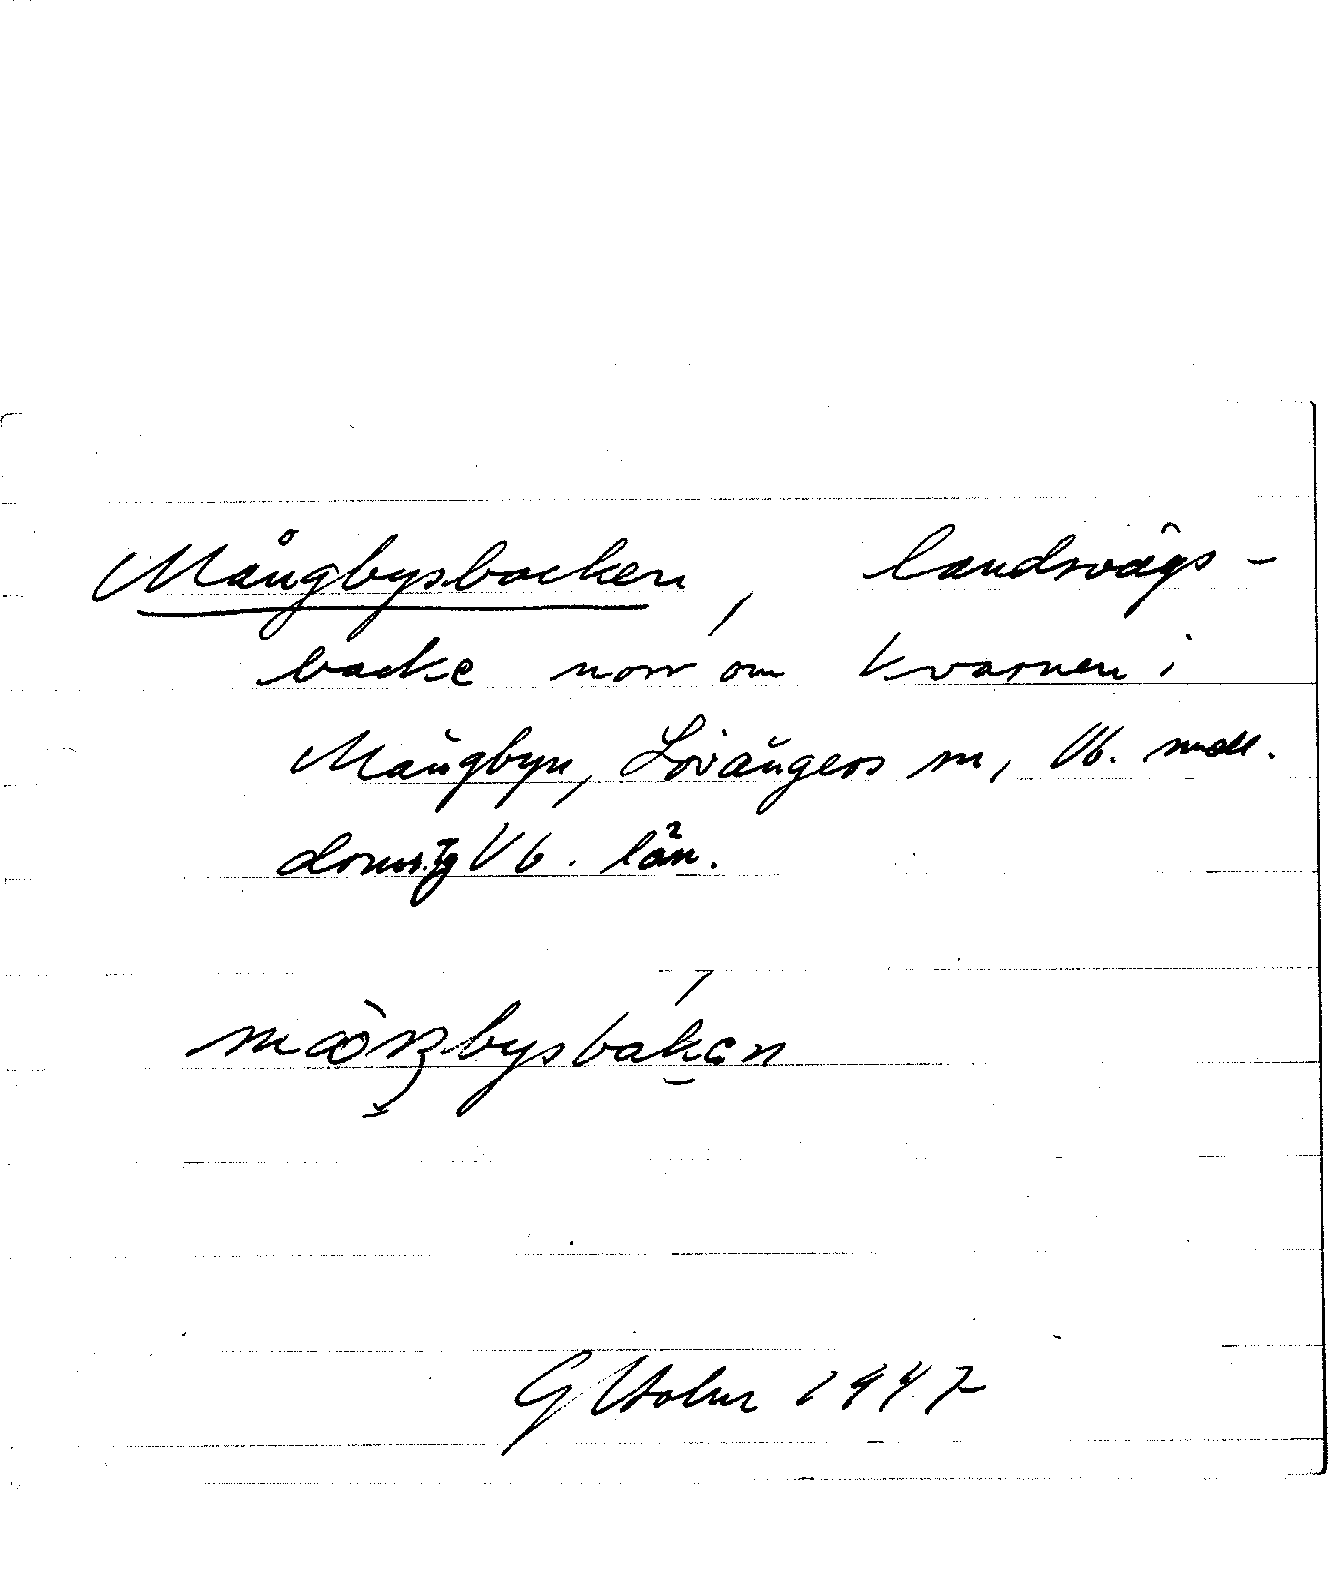 Mångbysbacken, landsvägs-
backe norr om Kvarnen i
Mångbyn, Lövångers sn, Vb. medel.
doms. Vb. län.
G Holm 1947